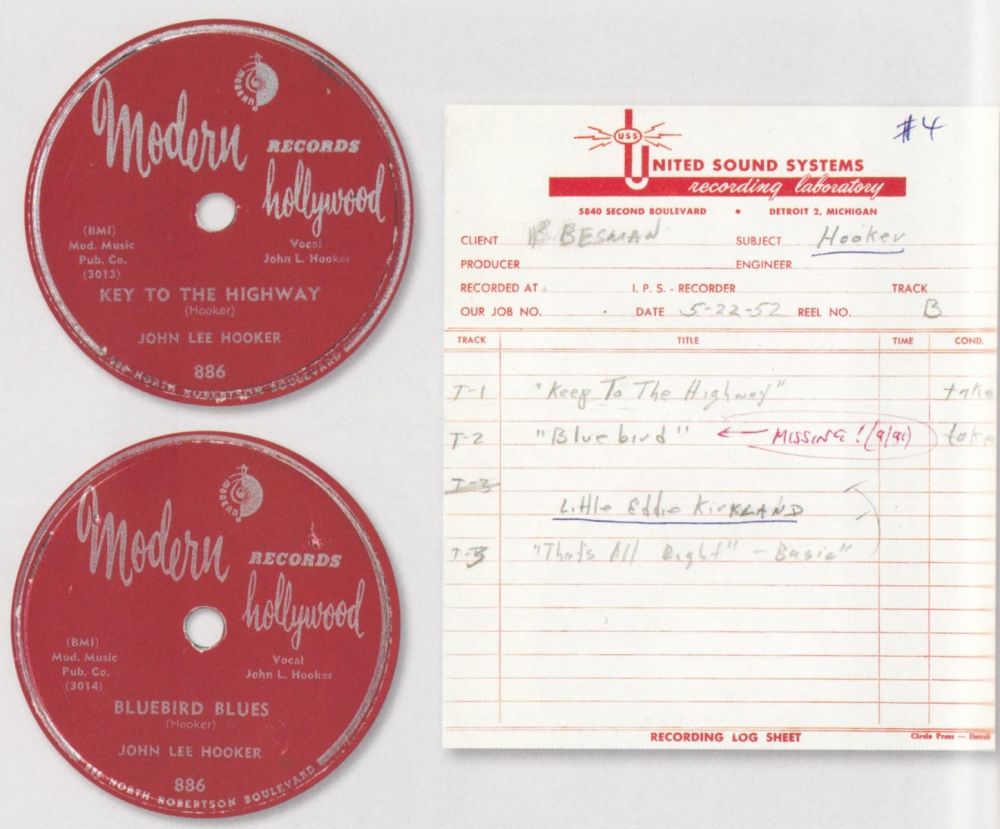 MODERN
Modern RECORDS
hollywood
(BMI)
Mod. Music
Pub. Co.
(3013)
Vocal
John L. Hooker
KEY TO THE HIGHWAY
(Hooker)
JOHN LEE HOOKER
886
NORTH ROBERTSON BOULEVARD
MODERN
Modern RECORDS
hollywood
(BMI)
Mod. Music
Pub. Co.
(3014)
Vocal
John L. Hooker
BLUEBIRD BLUES
(Hooker)
JOHN LEE HOOKER
886
NORTH ROBERTSON BOULEVARD
#4
USS
UNITED SOUND SYSTEMS
recording laboratory
5840 SECOND BOULEVARD • DETROIT 2, MICHIGAN
CLIENT B BESMAN SUBJECT Hooker
PRODUCER ENGINEER
RECORDED AT I. P. S. - RECORDER TRACK
OUR JOB NO. DATE 5-22-52 REEL NO. B
TRACK TITLE TIME COND.
T-1 "Keep To The Highway" take
T-2 "Bluebird" ← MISSING! (9/91) take
T-3
Little Eddie Kirkland
T-3 "Thats All Right" - Basie"
RECORDING LOG SHEET
Circle Press — Detroit